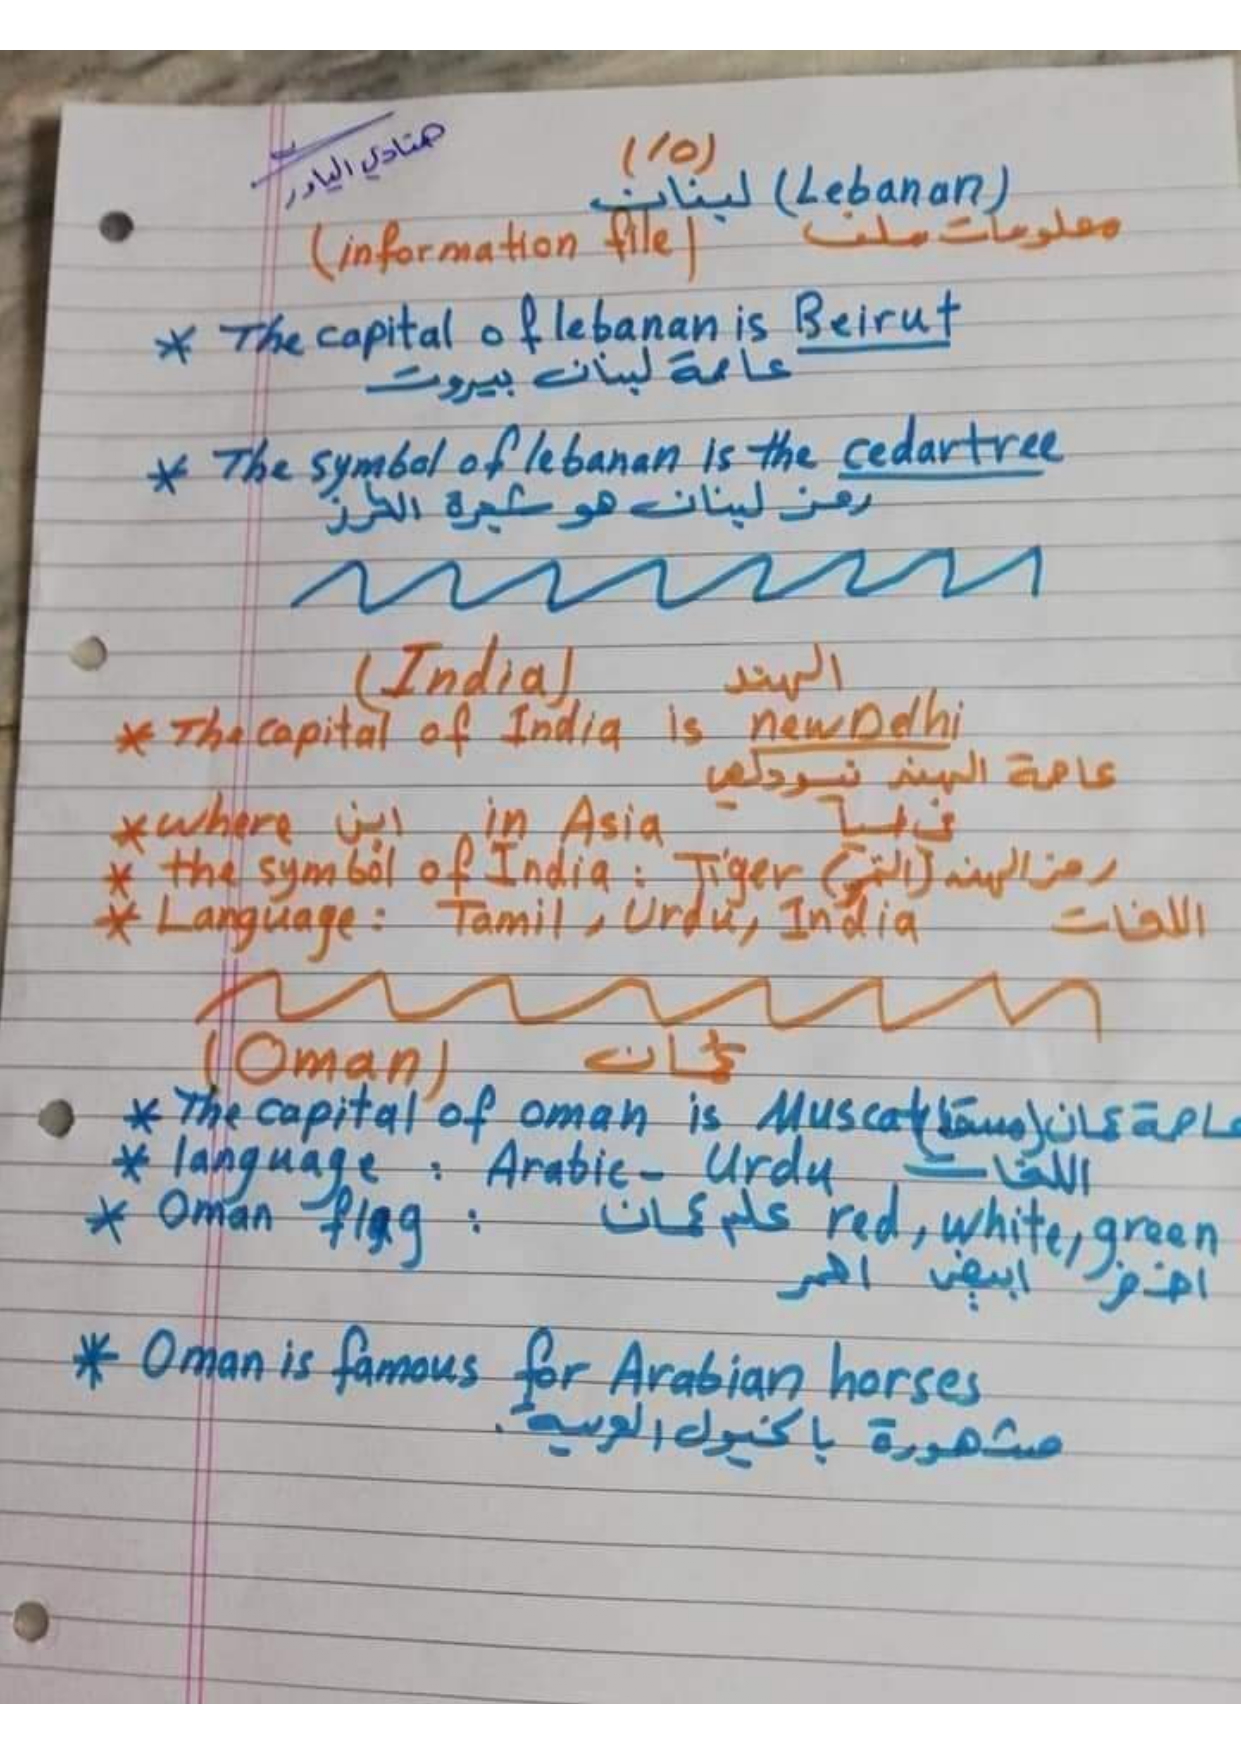 هنادي الياور
(١٥)
لبنان (Lebanan)
(information file) معلومات ملف
* The capital of lebanan is Beirut
عاصمة لبنان بيروت
* The symbol of lebanan is the cedartree
رمز لبنان هو شجرة الطرز
(India) الهند
* The capital of India is new Delhi
عاصمة الهند نيودلهي
* where اين in Asia في اسيا
* the symbol of India : Tiger رمز الهند (النمر)
* Language : Tamil, Urdu, India اللغات
(Oman) عمان
* The capital of oman is Muscat عاصة عمان (مسقط)
* language : Arabic - Urdu اللغات
* Oman flag : علم عمان red, white, green
اخضر ابيض احمر
* Oman is famous for Arabian horses
مشهورة بالخيول العربية.